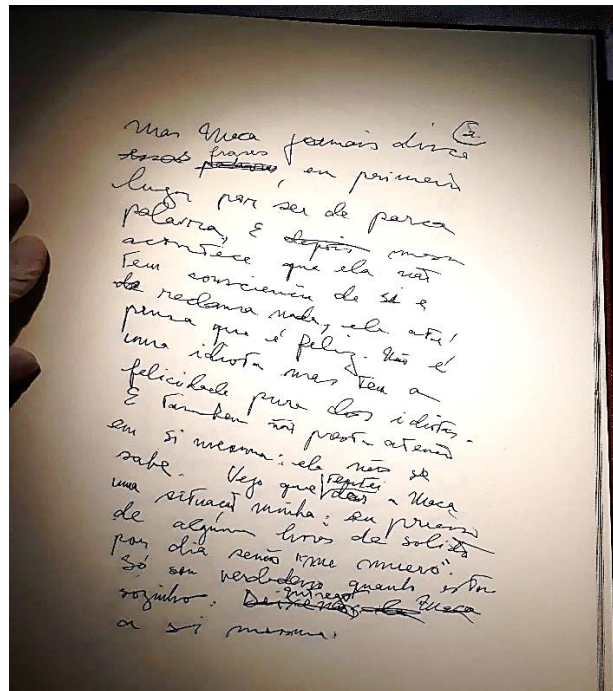 Mas Maca jamais disse
essas frases palavras, em primeiro
lugar por ser de parca
palavra, E depois
acontece que ela não
tem consciência de si e
reclama nada, ela até
pensa que é feliz. Não é
uma idiota mas tem a
felicidade pura dos idiotas.
E também não presta atenção
em si mesma: ela não se
sabe. Vejo que tentei a Maca
uma situação minha: eu preciso
de algumas horas de solidão
por dia senão "me muero".
Só sou verdadeiro quando estou
sozinho.
a si mesma.